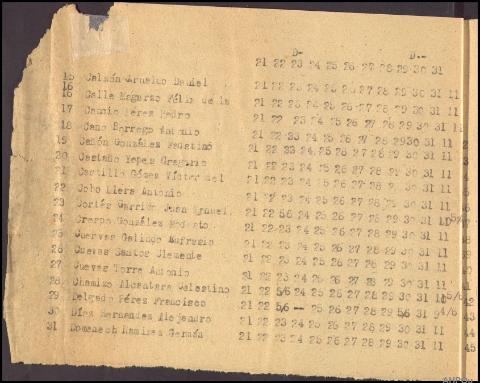 D- D.-
21 22 23 24 25 26 27 28 29 30 31
15 Calzón Arnelto Daniel 21 22 23 24 25 26 27 28 29 30 31 11
16 Calle Magarzo Félix de la 21 22 23 24 25 26 27 28 29 30 31 11
17 Pérez Pedro 21 22 23 24 25 26 27 28 29 30 31 11
18 Cano Borrego Antonio 21 22 23 24 25 26 27 28 29 30 31 11
19 Cañón González Faustino 21 22 23 24 25 26 27 28 29 30 31 11
20 Castaño Yepes Gregorio 21 22 23 24 25 26 27 28 29 30 31 11
21 Castillo Gómez Víctor del 21 22 23 24 25 26 27 28 29 30 31 11
22 Cobo Llera Antonio 21 22 23 24 25 26 27 28 29 30 31 11
23 Cortés Garrido Juan Manuel 21 22 5/6 24 25 26 27 28 29 30 31
24 Crespo González Modesto 21 22 23 24 25 26 27 28 29 30 31 11
25 Cuervas Galindo Eufrasio 21 22 23 24 25 26 27 28 29 30 31 11
26 Cuevas Santos Clemente 21 22 23 24 25 26 27 28 29 30 31 11
27 Cuevas Torre Antonio 21 22 23 24 25 26 27 28 29 30 31 11
28 Chamizo Alcántara Celestino 21 22 5/6 24 25 26 27 28 29 30 31 5/6
29 Delgado Pérez Francisco 21 22 5/6 -- 25 26 27 28 29 5/6 31 9 4/6
30 Díaz Hernández Alejandro 21 22 23 24 25 26 27 28 29 30 31 11
31 Domenech Ramírez Germán 21 22 23 24 25 26 27 28 29 30 31 11